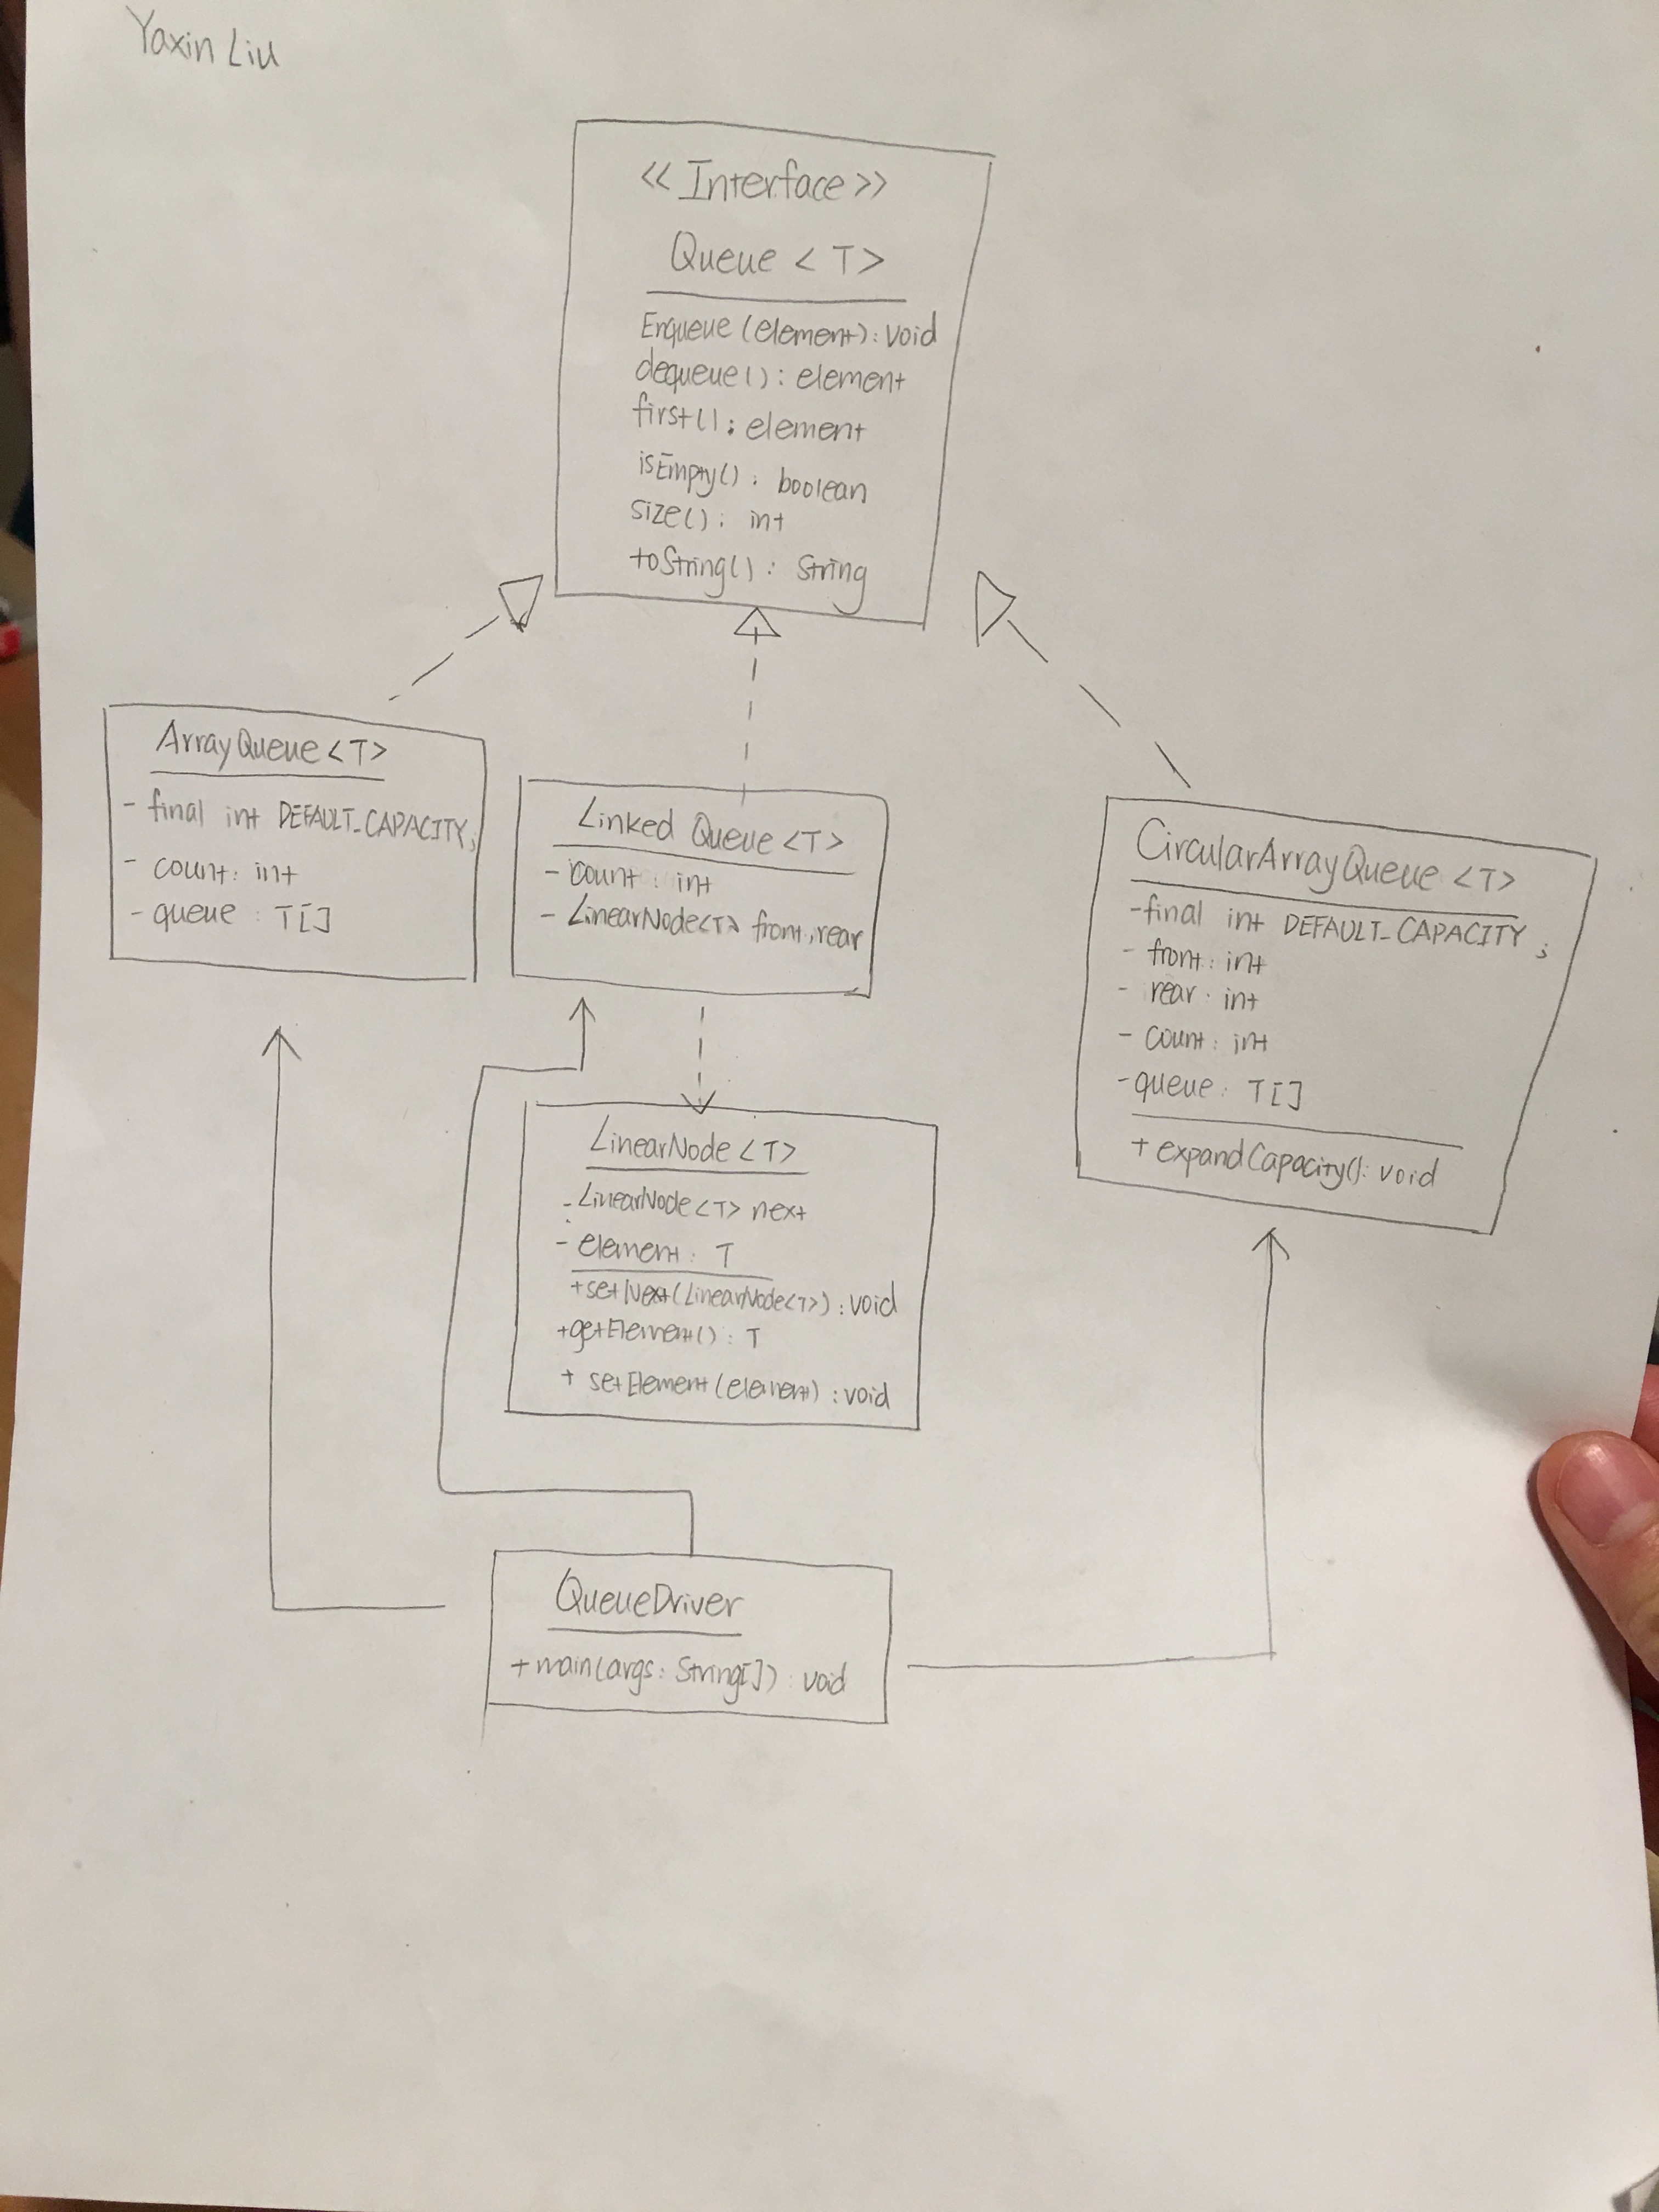 Yaxin Liu
<< Interface >>
Queue < T >
Enqueue (element): void
dequeue(): element
first(): element
isEmpty(): boolean
size(): int
toString(): String
ArrayQueue<T>
- final int DEFAULT_CAPACITY;
- count: int
- queue : T[]
Linked Queue <T>
- count : int
- LinearNode<T> front, rear
CircularArrayQueue <T>
-final int DEFAULT_CAPACITY;
- front: int
- rear: int
- count: int
-queue: T[]
+ expandCapacity(): void
LinearNode <T>
- LinearNode<T> next
- element: T
+setNext(LinearNode<T>): void
+getElement(): T
+ setElement(element): void
QueueDriver
+main(args: String[]): void